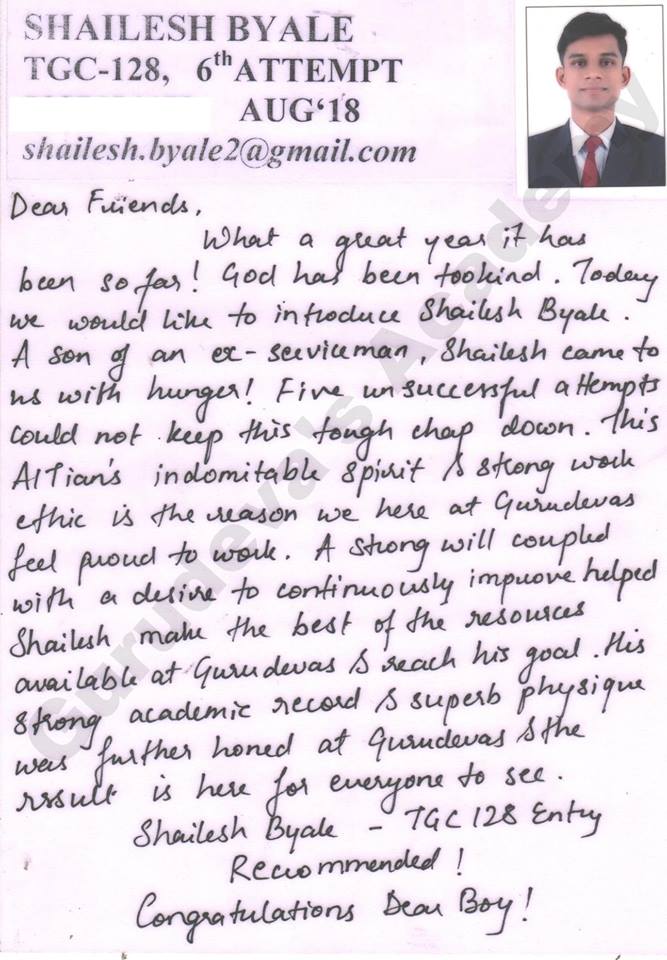 SHAILESH BYALE
TGC-128, 6th ATTEMPT
AUG'18
shailesh.byale2@gmail.com
Dear Friends,
What a great year it has
been so far! God has been too kind. Today
we would like to introduce Shailesh Byale.
A son of an ex-serviceman, Shailesh came to
us with hunger! Five unsuccessful attempts
could not keep this tough chap down. This
AITian's indomitable spirit & strong work
ethic is the reason we here at Gurudevas
feel proud to work. A strong will coupled
with a desire to continuously improve helped
Shailesh make the best of the resources
available at Gurudevas & reach his goal. His
strong academic record & superb physique
was further honed at Gurudevas & the
result is here for everyone to see.
Shailesh Byale - TGC 128 Entry
Recommended!
Congratulations Dear Boy!
Gurudeva's Academy